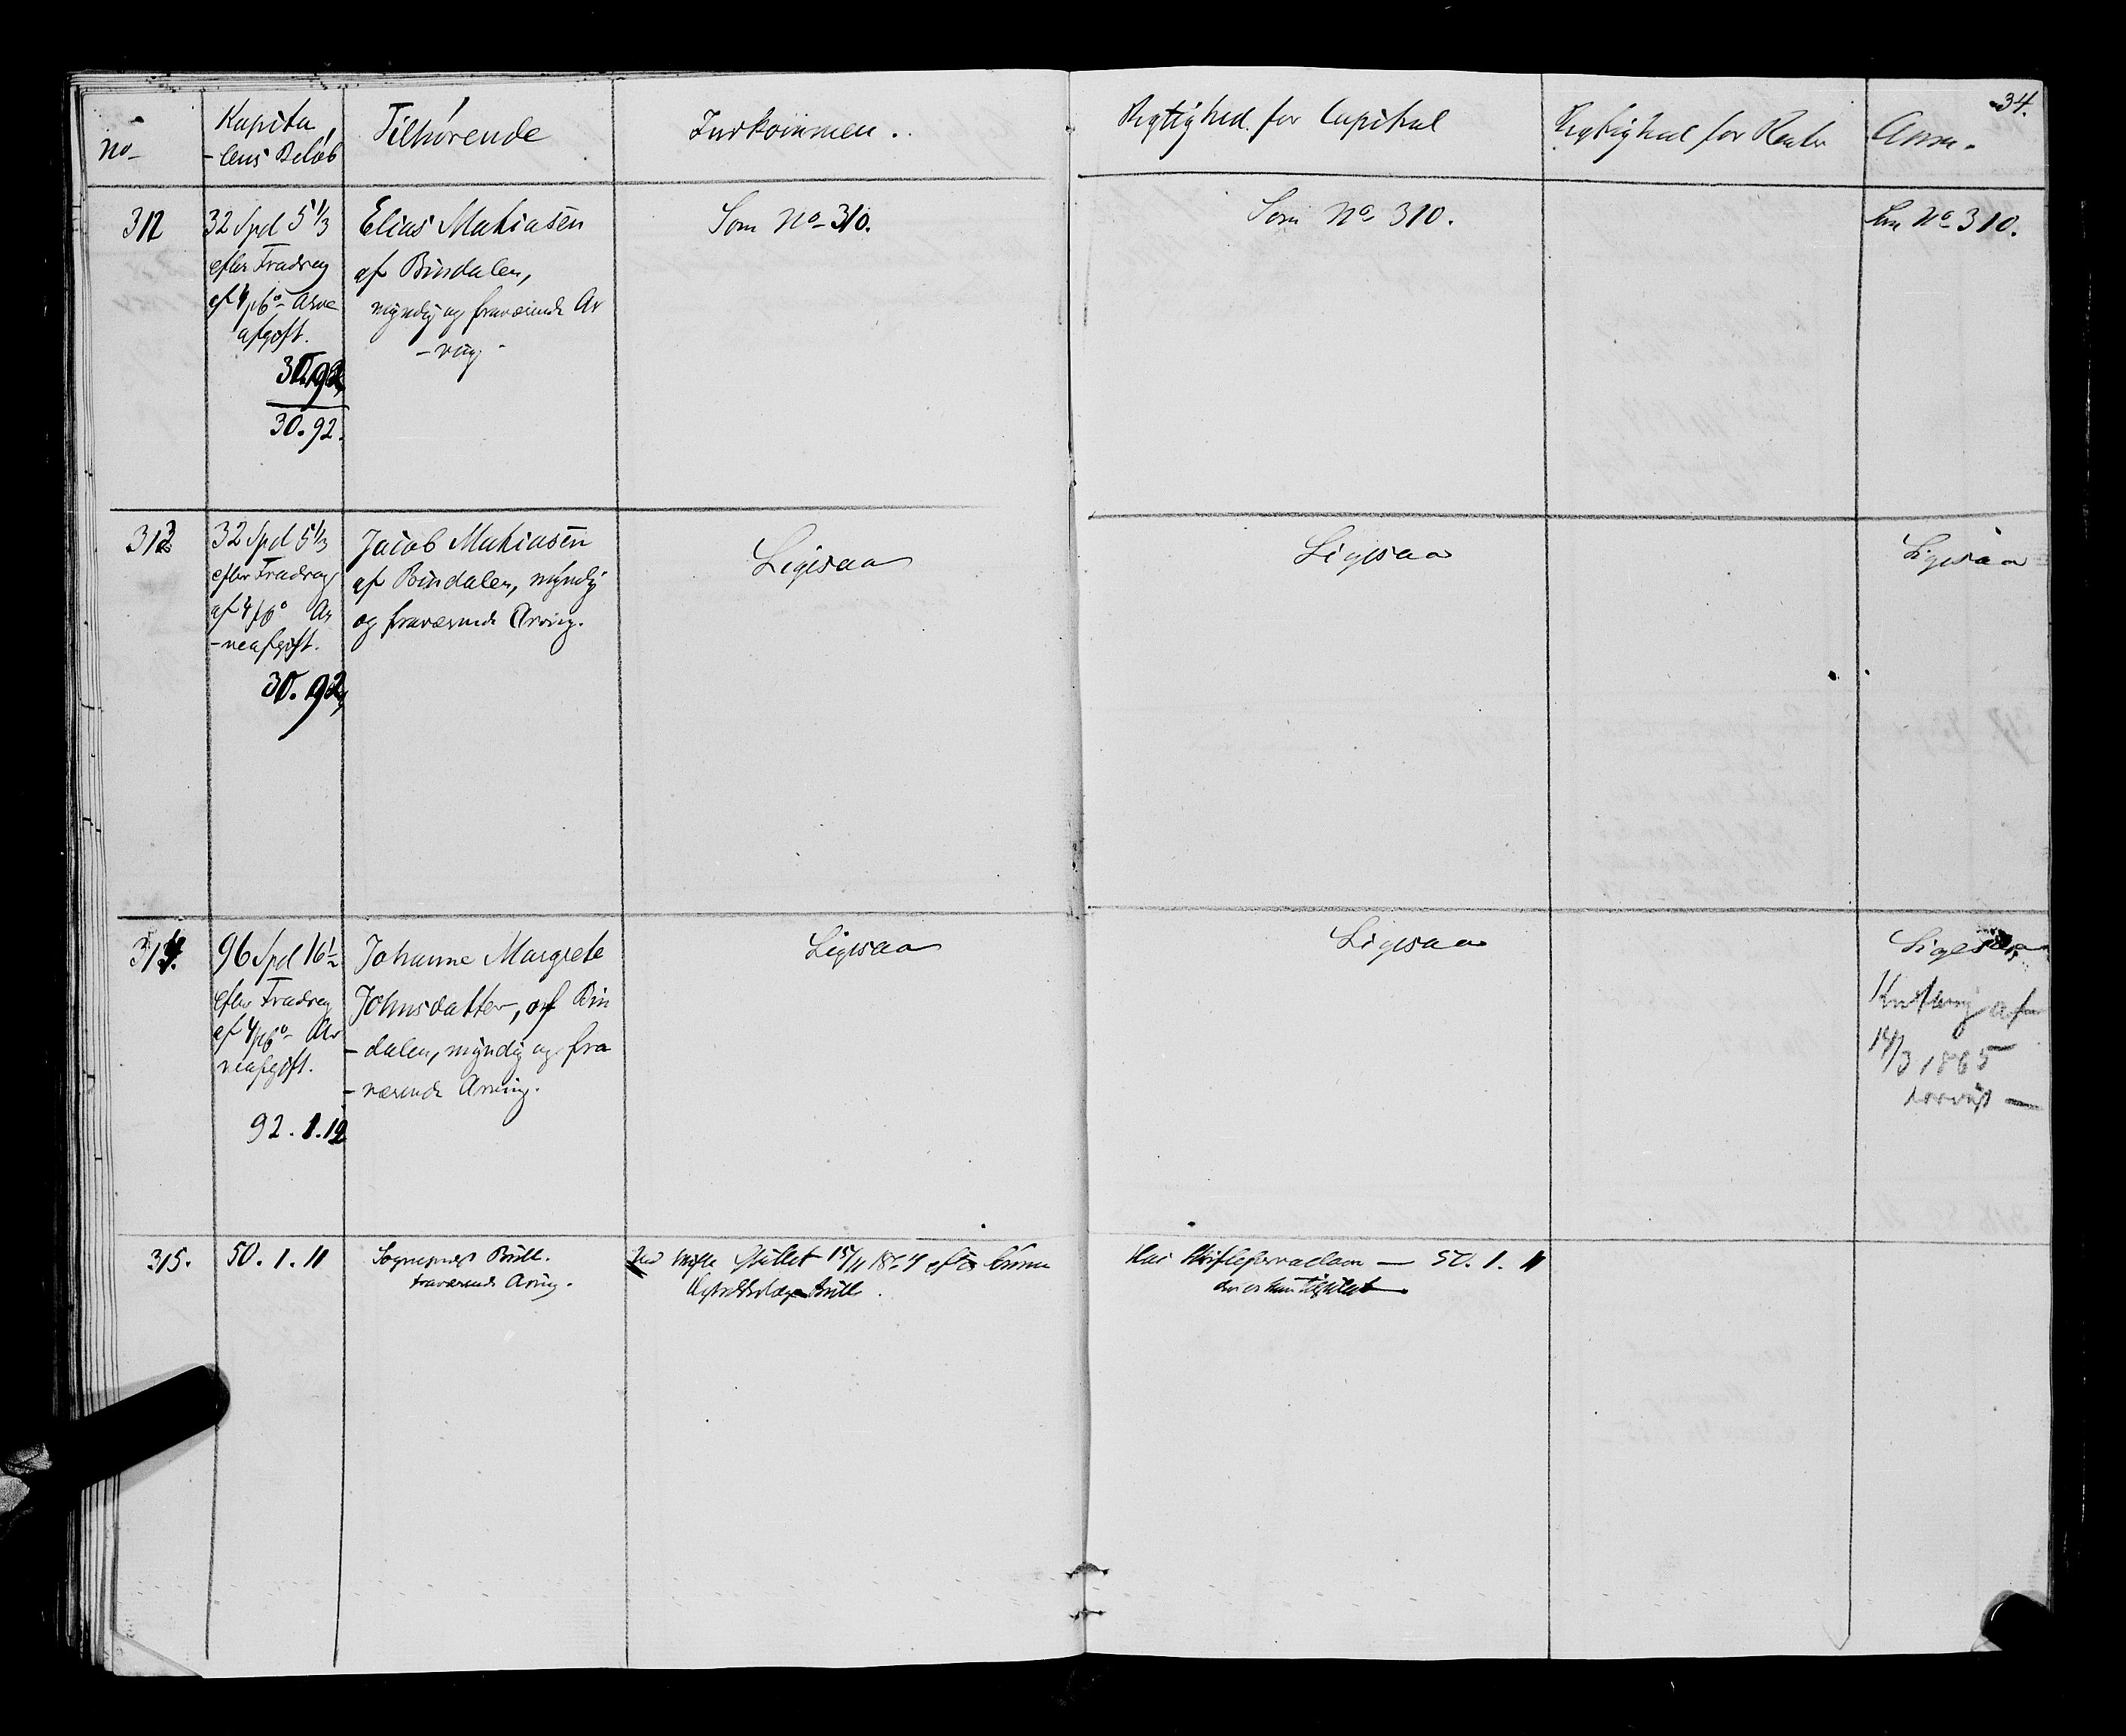 34.
No
Kapita
-lens Beløb
Tilhørende
Indkommen.
Rigtighed for Capital
Rigtighed for Renter
Anm.
312
32 Spd 5 1/3
efter Fradrag
af 4 pC Arve
afgift.
30.92
30.92.
Elias Mathiasen
af Bindalen,
myndig og fraværende Ar
-ving
Som No 310.
Som No 310.
Som No 310.
313
32 Spd 5 1/3
efter Fradrag
af 4 pC Ar
-veafgift.
30.92
Jacob Mathiasen
af Bindalen, myndig
og fraværende Arving.
Ligesaa
Ligesaa
Ligesaa
314.
96 Spd 16 1/2
efter Fradrag
af 4 pC Ar
veafgift.
92.1.12
Johanne Margrete
Johnsdatter, af Bin
-dalen, myndig og fra
-værende Arving.
Ligesaa
Ligesaa
Ligesaa
af
14/3 1865
315.
50.1.11
Sogneprest Bull.
fraværende Arving.
sluttet 15/11 18
Bull
50.1.11